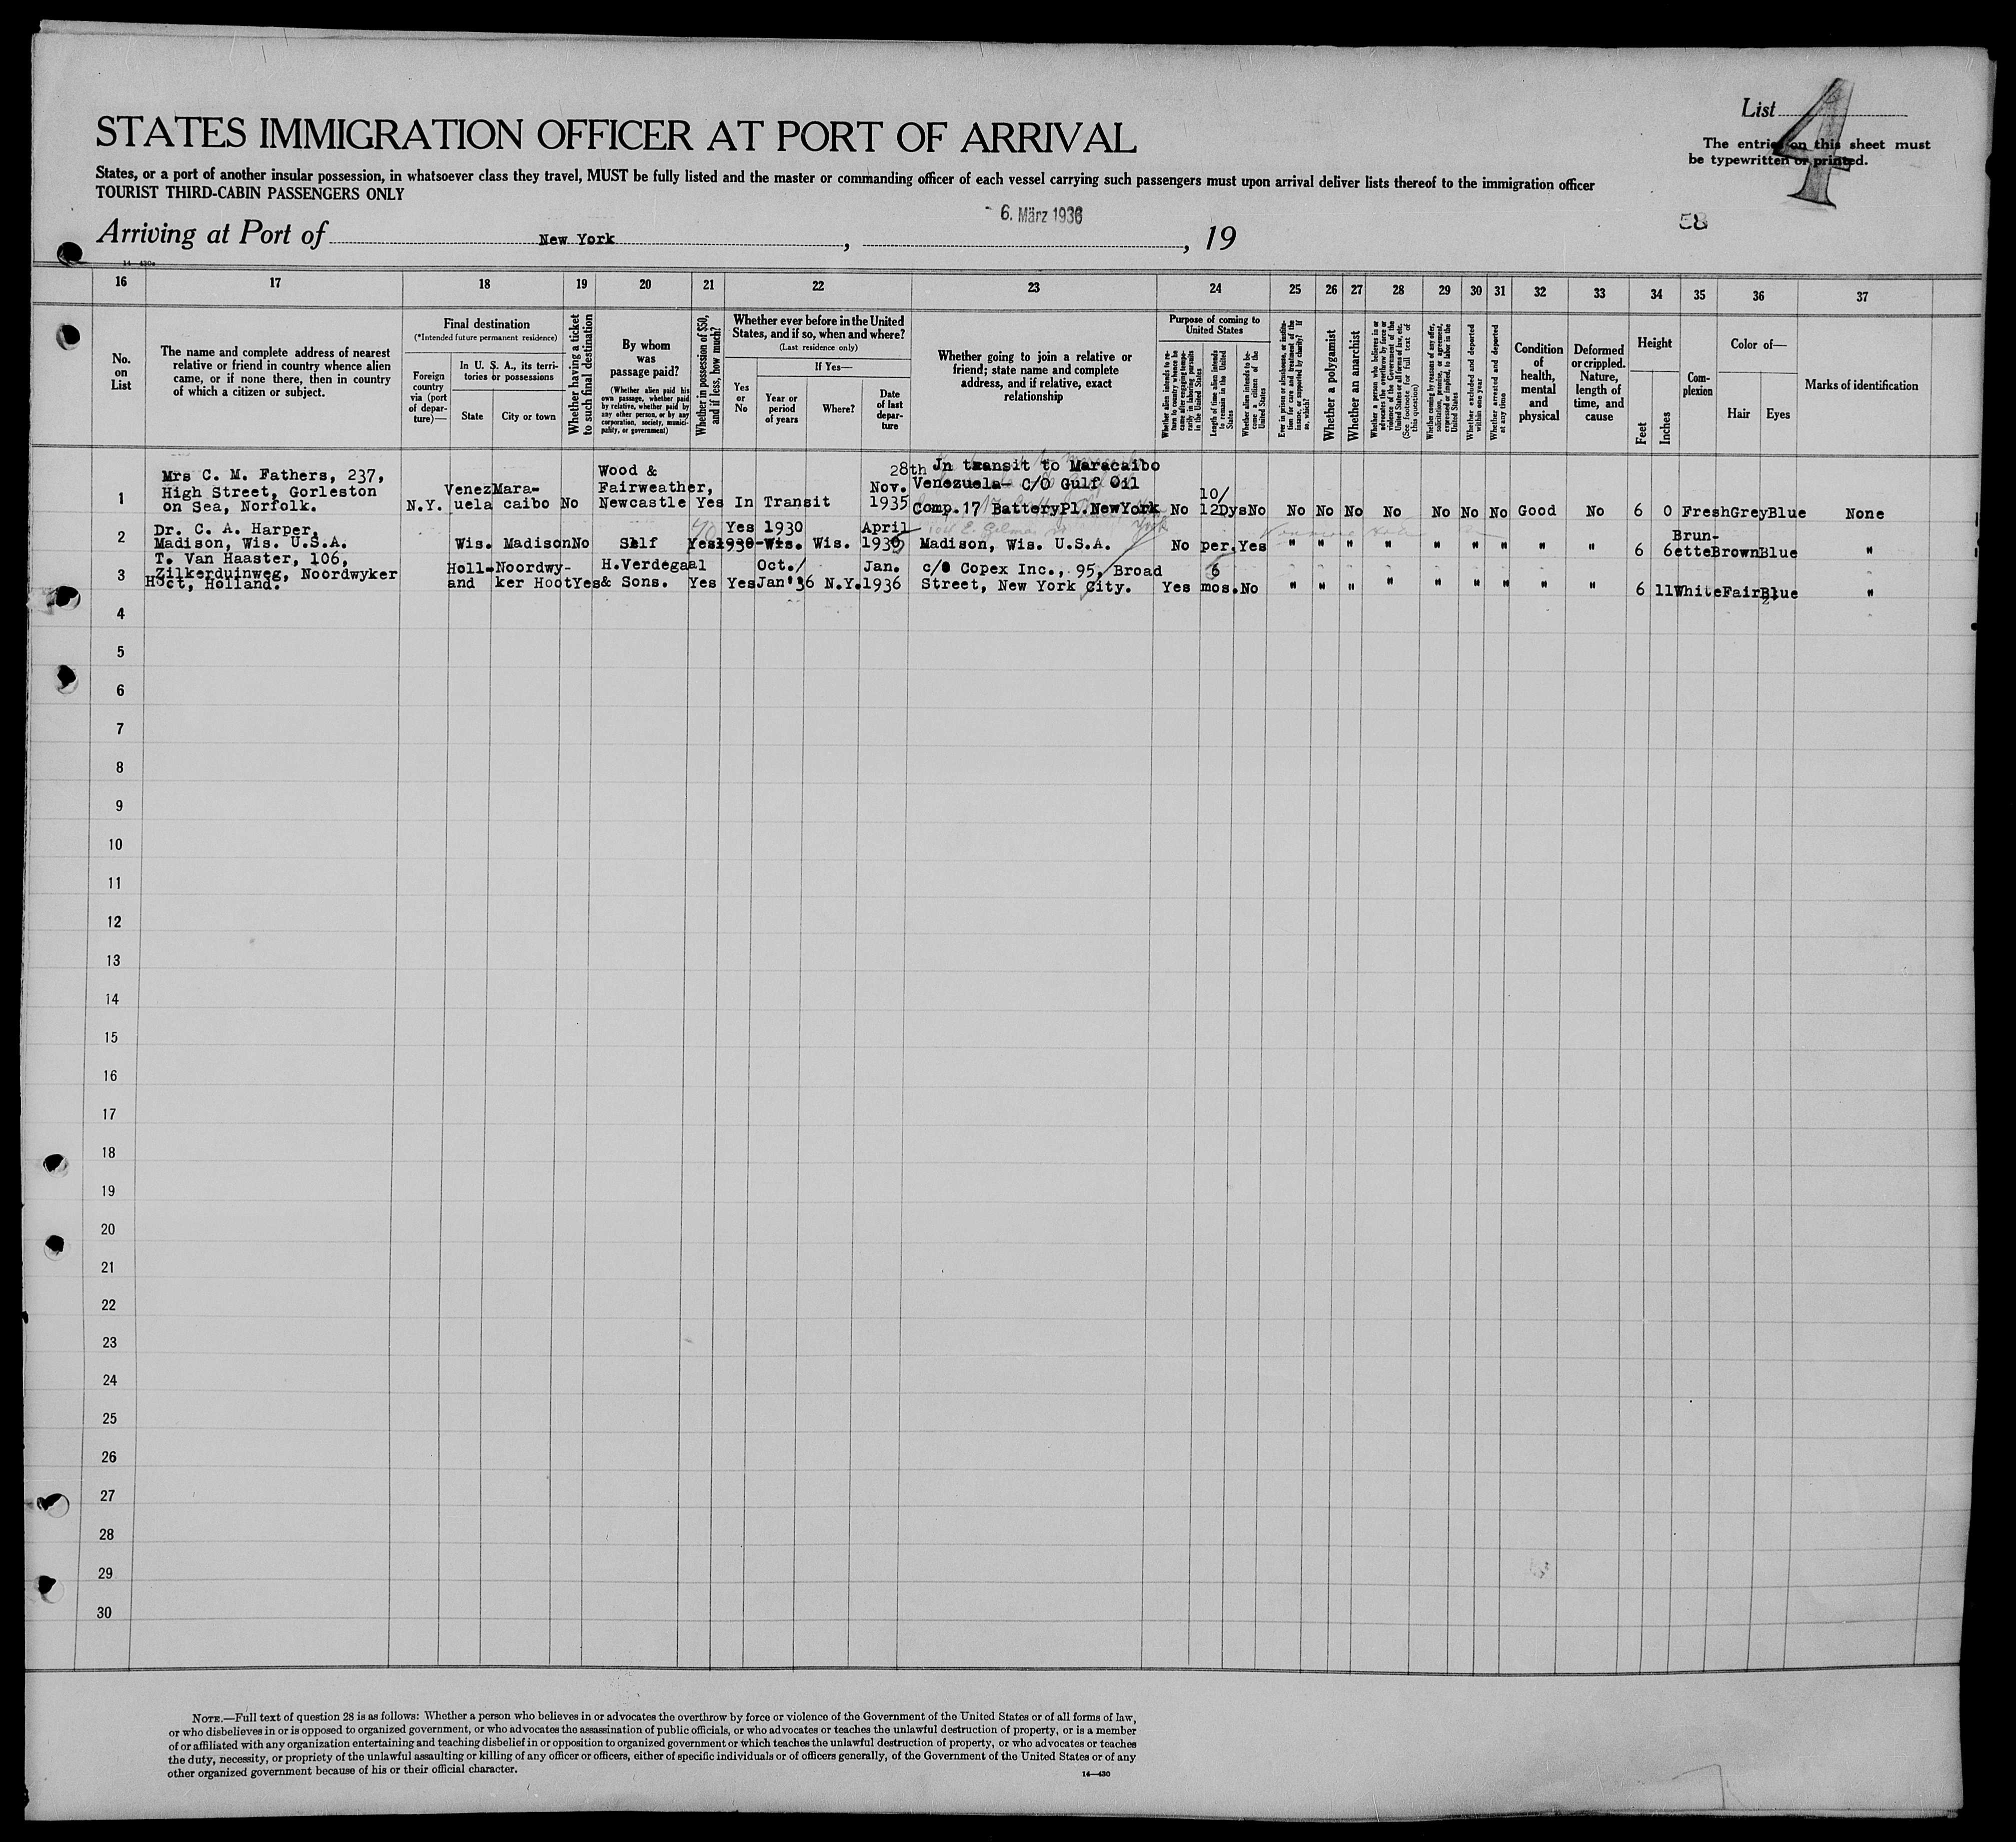 List 4
STATES IMMIGRATION OFFICER AT PORT OF ARRIVAL
The entries on this sheet must
be typewritten or printed.
States, or a port of another insular possession, in whatsoever class they travel, MUST be fully listed and the master or commanding officer of each vessel carrying such passengers must upon arrival deliver lists thereof to the immigration officer
TOURIST THIRD-CABIN PASSENGERS ONLY
58
Arriving at Port of New York, 6. März 1936, 19
14—430a
16 17 18 19 20 21 22 23 24 25 26 27 28 29 30 31 32 33 34 35 36 37
No.
on
List
The name and complete address of nearest
relative or friend in country whence alien
came, or if none there, then in country
of which a citizen or subject.
Final destination
(*Intended future permanent residence)
Foreign
country
via (port
of depar-
ture)—
In U. S. A., its terri-
tories or possessions
State
City or town
Whether having a ticket
to such final destination
By whom
was
passage paid?
(Whether alien paid his
own passage, whether paid
by relative, whether paid by
any other person, or by any
corporation, society, munici-
pality, or government)
Whether in possession of $50,
and if less, how much?
Whether ever before in the United
States, and if so, when and where?
(Last residence only)
Yes
or
No
If Yes—
Year or
period
of years
Where?
Date
of last
depar-
ture
Whether going to join a relative or
friend; state name and complete
address, and if relative, exact
relationship
Purpose of coming to
United States
Whether alien intends to re-
turn to country whence he
came after engaging tempo-
rarily in laboring pursuits
in the United States
Length of time alien intends
to remain in the United
States
Whether alien intends to be-
come a citizen of the
United States
Ever in prison or almshouse, or institu-
tion for care and treatment of the
insane, or supported by charity? If
so, which?
Whether a polygamist
Whether an anarchist
Whether a person who believes in or
advocates the overthrow by force or
violence of the Government of the
United States or all forms of law, etc.
(See footnote for full text of
this question)
Whether coming by reason of any offer,
solicitation, promise, or agreement,
expressed or implied, to labor in the
United States
Whether excluded and deported
within one year
Whether arrested and deported
at any time
Condition
of
health,
mental
and
physical
Deformed
or crippled.
Nature,
length of
time, and
cause
Height
Feet
Inches
Com-
plexion
Color of—
Hair
Eyes
Marks of identification
1
Mrs C. M. Fathers, 237,
High Street, Gorleston
on Sea, Norfolk.
N.Y.
Venez
uela
Mara-
caibo
No
Wood &
Fairweather,
Newcastle
Yes
In Transit
28th
Nov.
1935
Jn transit to Maracaibo
Venezuela- C/O Gulf Oil
Comp.17 BatteryPl.NewYork
No
10/
12Dys
No
No No No No No No No Good No 6 0 Fresh Grey Blue None
2
Dr. C. A. Harper,
Madison, Wis. U.S.A.
Wis. Madison No Self Yes
Yes 1930
1930-Wis. Wis.
April
1936
104 E. Gilman
York
Madison, Wis. U.S.A.
No per. Yes " " " " " " " " " 6 6
Brun-
ette Brown Blue "
3
T. Van Haaster, 106,
Zilkerduinweg, Noordwyker
Hoct, Holland.
Holl-
and
Noordwy-
ker Hoot
Yes
H.Verdegaal
& Sons.
Yes Yes
Oct./
Jan'36 N.Y.
Jan.
1936
c/o Copex Inc., 95, Broad
Street, New York City.
Yes
6
mos. No " " " " " " " " " 6 11 White Fair Blue "
4
5
6
7
8
9
10
11
12
13
14
15
16
17
18
19
20
21
22
23
24
25
26
27
28
29
30
NOTE.—Full text of question 28 is as follows: Whether a person who believes in or advocates the overthrow by force or violence of the Government of the United States or of all forms of law,
or who disbelieves in or is opposed to organized government, or who advocates the assassination of public officials, or who advocates or teaches the unlawful destruction of property, or is a member
of or affiliated with any organization entertaining and teaching disbelief in or opposition to organized government or which teaches the unlawful destruction of property, or who advocates or teaches
the duty, necessity, or propriety of the unlawful assaulting or killing of any officer or officers, either of specific individuals or of officers generally, of the Government of the United States or of any
other organized government because of his or their official character.
14—430